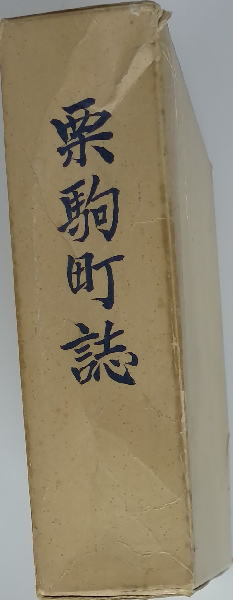 栗駒町誌